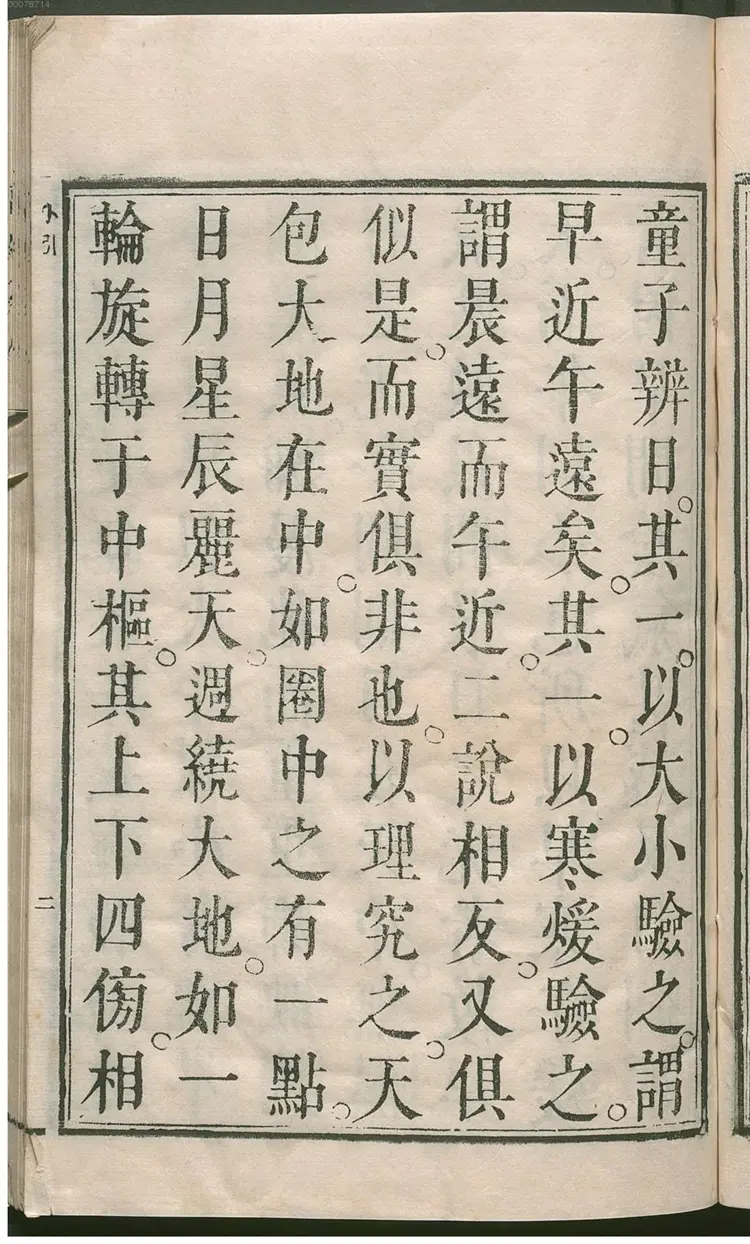 00079714
童子辨日。其一。以大小驗之。謂
早近午遠矣。其一。以寒、煖驗之。
謂晨遠而午近。二說相反。又俱
似是。而實俱非也。以理究之。天
包大地在中。如圈中之有一點。
日月星辰麗天。週繞大地。如一
輪旋轉于中樞。其上下四傍。相
小引
二